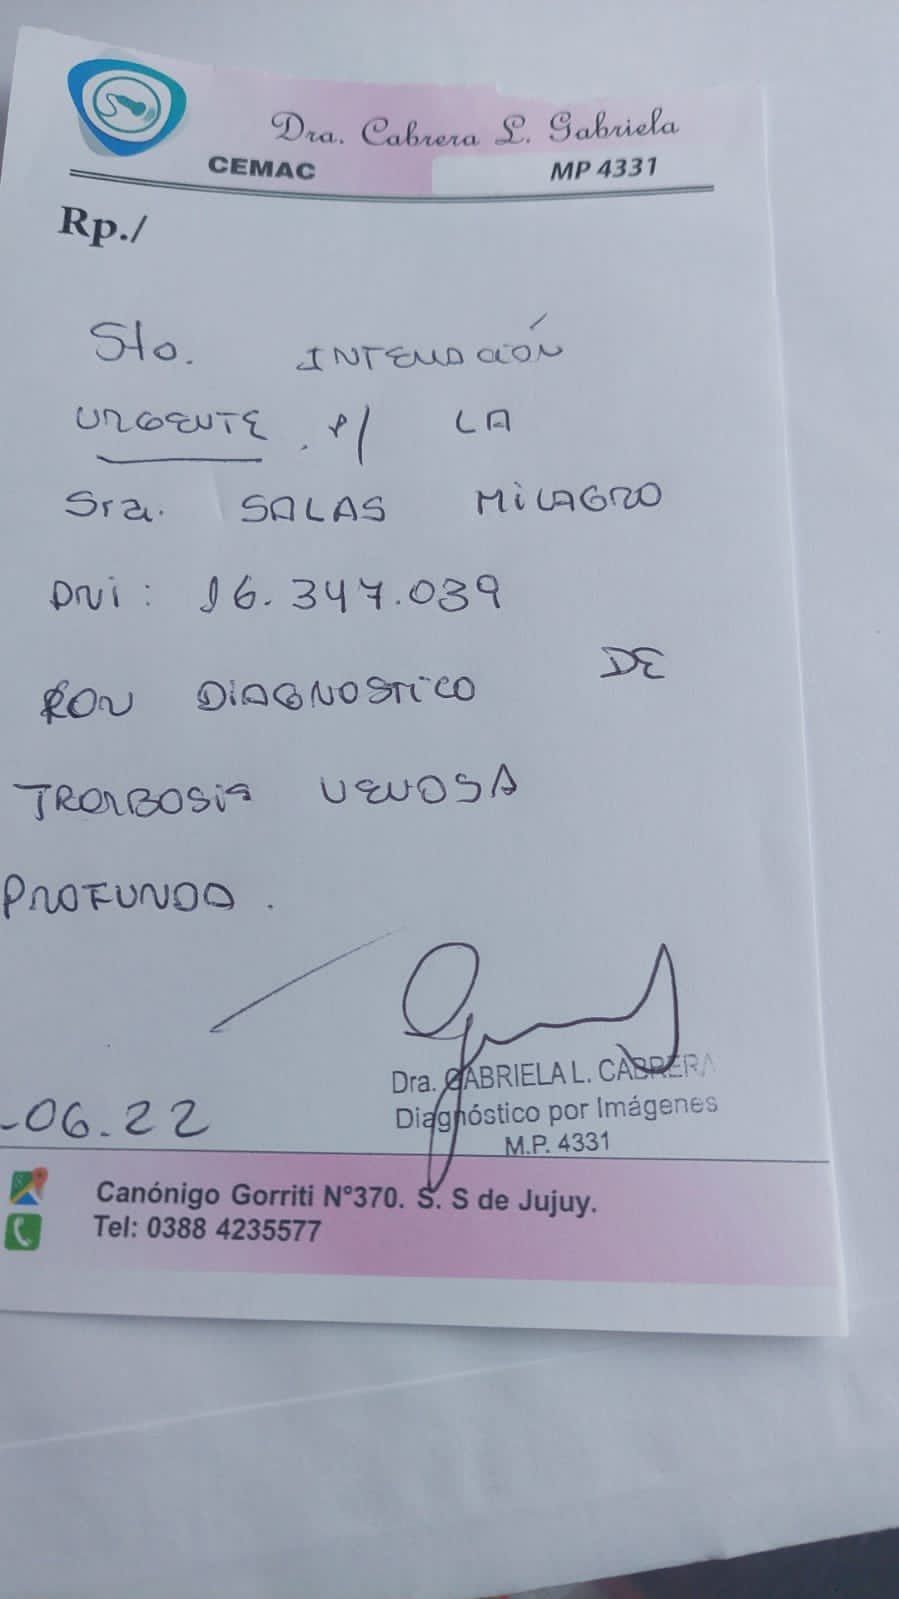 Dra. Cabrera L. Gabriela
CEMAC MP 4331
Rp./
Sto. INTERNACIÓN
URGENTE p/ LA
Sra. SALAS MILAGRO
DNI: 16.347.039
CON DIAGNOSTICO DE
TROMBOSIS VENOSA
PROFUNDA.
-06.22
Dra. GABRIELA L. CABRERA
Diagnóstico por Imágenes
M.P. 4331
Canónigo Gorriti N°370. S. S de Jujuy.
Tel: 0388 4235577